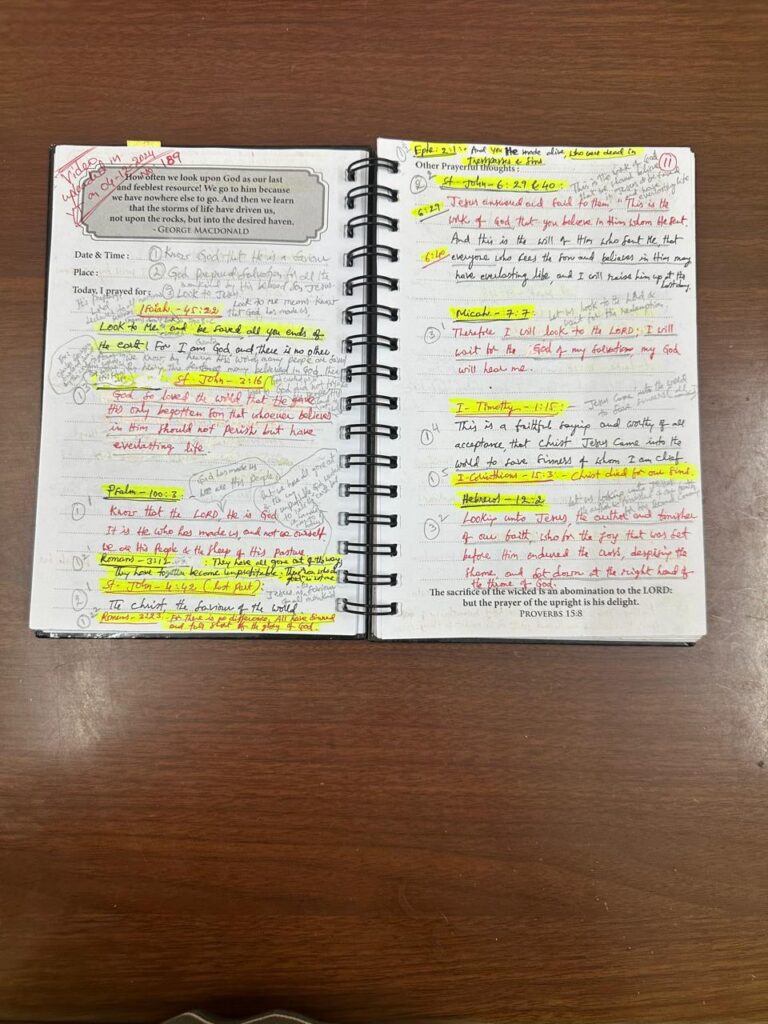 Video
uploaded in
on 04-12-2024
No 189
How often we look upon God as our last
and feeblest resource! We go to him because
we have nowhere else to go. And then we learn
that the storms of life have driven us,
not upon the rocks, but into the desired haven.
- GEORGE MACDONALD
Date & Time : ① Know God that He is a Saviour
Place : ② God prepared Salvation for all the
mankind by His beloved Son Jesus
Today, I prayed for : ③ Look to Jesus
Look to Me means know
that God has made us
Isaiah - 45:22
Look to Me, and be saved all you ends of
the earth! For I am God, and there is no other
St. John - 3:16
① God so loved the world that He gave
His only begotten Son that whoever believes
in Him should not perish but have
everlasting life.
God has made us
we are His people
Psalm - 100:3
① Know that the LORD, He is God
It is He who has made us, and not we ourself
we are His People & the sheep of His Pasture
Romans - 3:12 : They have all gone out of the way
They have together become unprofitable: There is none who does
good, no not one
② St. John - 4:42 (last part):
Jesus is Saviour
of all mankind
The Christ, the Saviour of the world
① Romans - 3:23: For there is no difference, All have sinned
and fall short of the glory of God.
Ephe: 2:1: And you He made alive, who were dead in
Trespasses & Sins.
Other Prayerful thoughts :
11
② St. John - 6:29 & 40:
This is the work of God
6:29 Jesus answered and said to them "This is the
work of God, that you believe in Him whom He sent.
6:40 And this is the will of Him who sent Me, that
everyone who sees the Son and believes in Him may
have everlasting life, and I will raise him up at the
last day.
Micah - 7:7
Let us look to the LORD &
wait for the redemption.
③ Therefore I will look to the LORD; I will
wait for the God of my Salvation my God
will hear me.
I - Timothy - 1:15:
Jesus came into the world
to save sinners
① This is a faithful saying and worthy of all
acceptance, that Christ Jesus Came into the
world to save Sinners of whom I am chief
① I - Corinthians - 15:3 - Christ died for our Sins.
Hebrews - 12:2
③ Looking unto Jesus, the author and finisher
of our faith, who for the joy that was set
before Him endured the cross, despising the
shame, and sat down at the right hand of
the throne of God.
The sacrifice of the wicked is an abomination to the LORD:
but the prayer of the upright is his delight.
PROVERBS 15:8